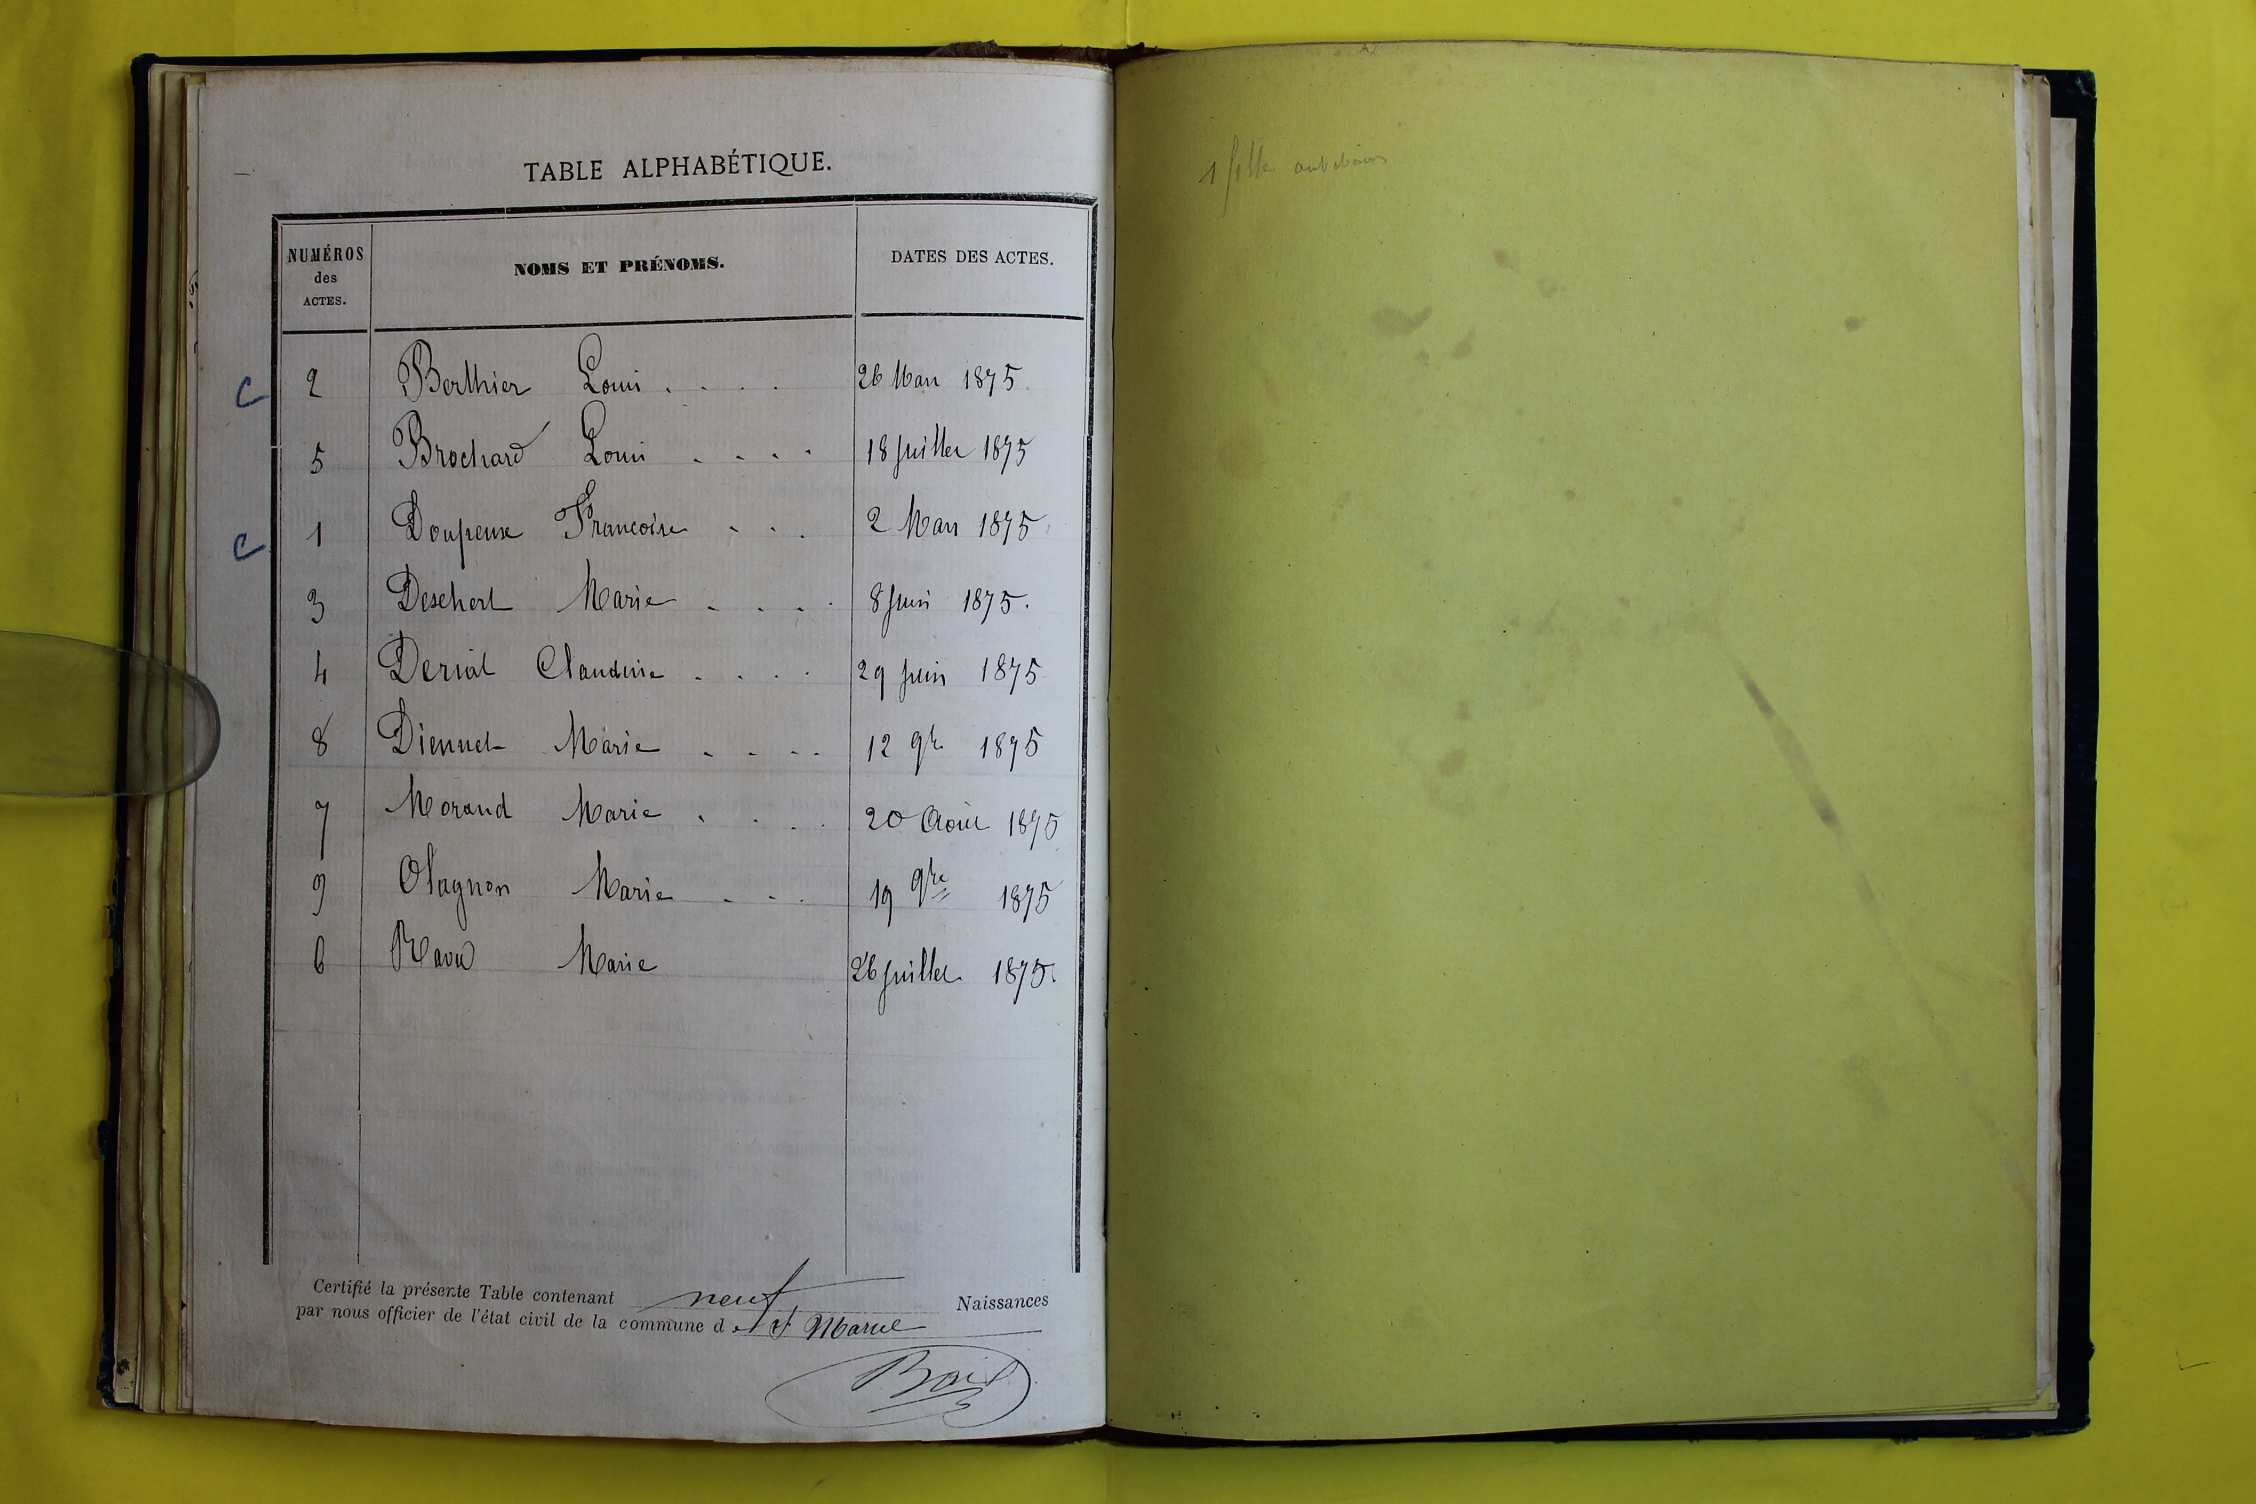 TABLE ALPHABÉTIQUE.
NUMÉROS des ACTES. NOMS ET PRÉNOMS. DATES DES ACTES.
C 2 Berthier Louis . . . . 26 Mars 1875
5 Brochard Louis . . . . 18 Juillet 1875
C 1 Doupeux Francoise . . . 2 Mars 1875
3 Marie . . . . 8 Juin 1875.
4 Claudine . . . . 29 Juin 1875
8 Diennet Marie . . . . 12 9bre 1875
7 Morand Marie . . . . 20 Août 1875
9 Olagnon Marie . . . 19 9bre 1875
6 Marie 26 Juillet 1875.
Certifié la présente Table contenant neuf Naissances
par nous officier de l'état civil de la commune de St Marcel
1 fille